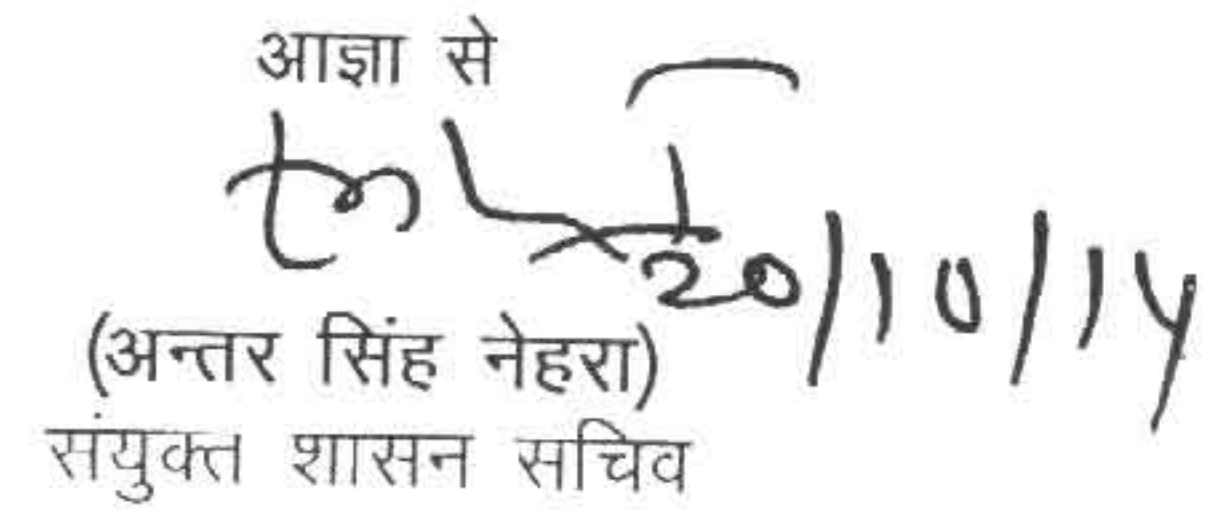 आज्ञा से
20/10/14
(अन्तर सिंह नेहरा)
संयुक्त शासन सचिव